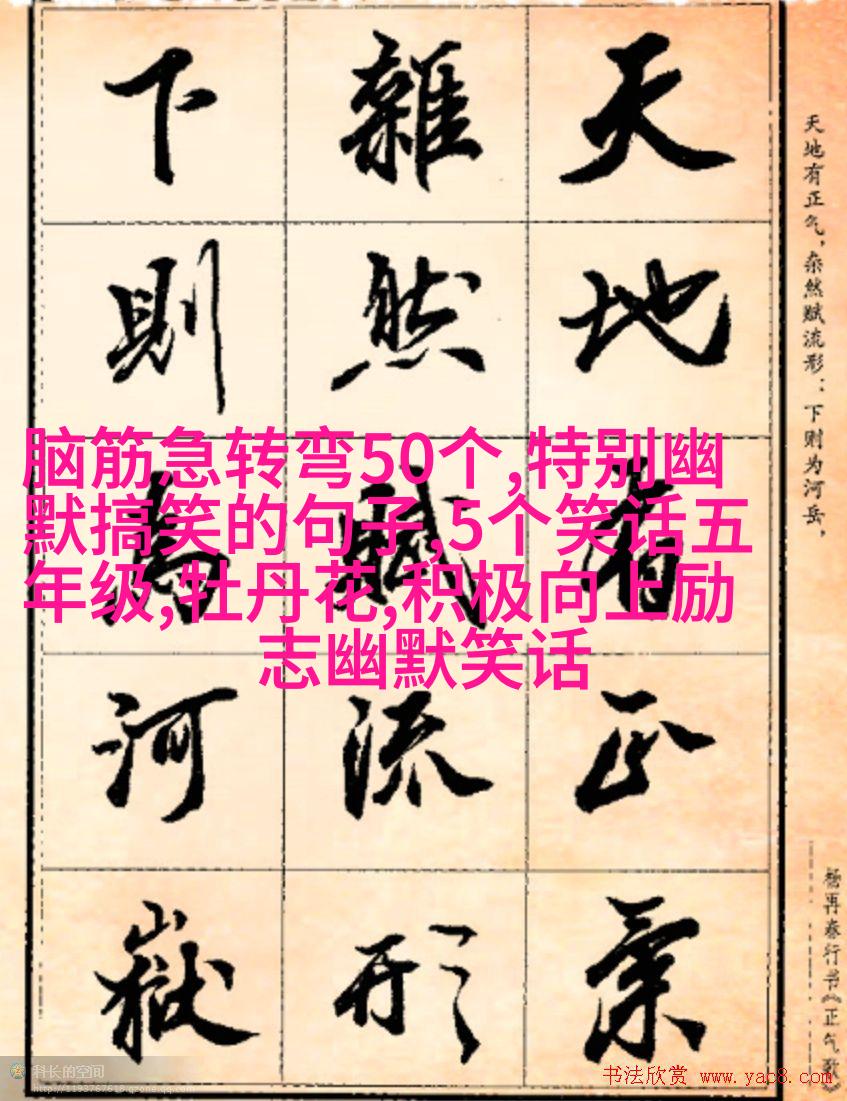 天地有正氣
雜然賦流形
下則為河嶽
天地有正气，杂然赋流形：下则为河岳，
杨再春行书《正气歌》
脑筋急转弯50个,特别幽
默搞笑的句子,5个笑话五
年级,牡丹花,积极向上励
志幽默笑话
科长的空间
http://1193767618.qzone.qq.com
书法欣赏 www.yac8.com